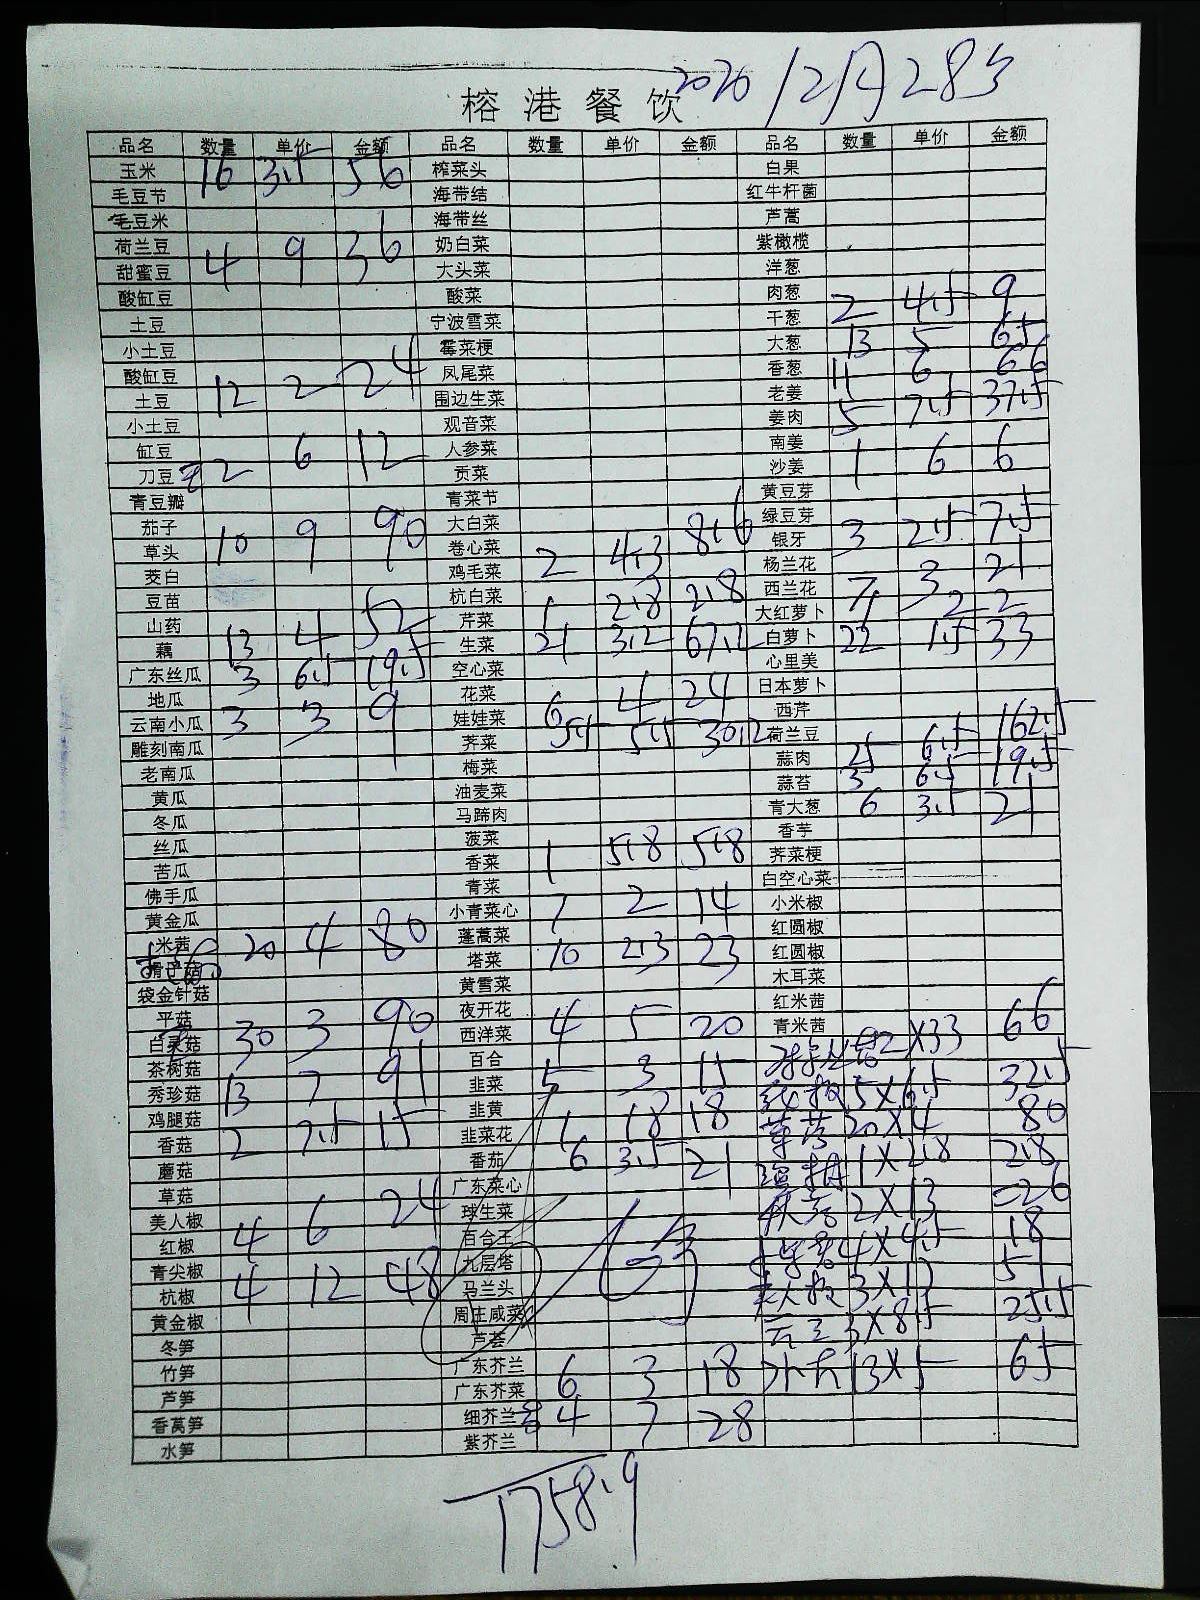 2020 12月28号
榕港餐饮
品名 数量 单价 金额
玉米 16 3.5 56
毛豆节
毛豆米
荷兰豆
甜蜜豆 4 9 36
酸缸豆
土豆
小土豆
酸缸豆
土豆 12 2 24
小土豆
缸豆
刀豆 2 6 12
青豆瓣
茄子
草头 10 9 90
茭白
豆苗
山药
藕 13 4 52
广东丝瓜 3 6.5 19.5
地瓜
云南小瓜 3 3 9
雕刻南瓜
老南瓜
黄瓜
冬瓜
丝瓜
苦瓜
佛手瓜
黄金瓜
米茜 20 4 80
袋金针菇
平菇
白灵菇 30 3 90
茶树菇
秀珍菇 13 7 91
鸡腿菇
香菇 2 7.5 15
蘑菇
草菇
美人椒
红椒 4 6 24
青尖椒
杭椒 4 12 48
黄金椒
冬笋
竹笋
芦笋
香莴笋
水笋
品名 数量 单价 金额
榨菜头
海带结
海带丝
奶白菜
大头菜
酸菜
宁波雪菜
霉菜梗
凤尾菜
围边生菜
观音菜
人参菜
贡菜
青菜节
大白菜
卷心菜 2 4.3 8.6
鸡毛菜
杭白菜
芹菜 1 2.8 2.8
生菜 21 3.2 67.2
空心菜
花菜
娃娃菜 6 4 24
荠菜 5.5 5.5 30.2
梅菜
油麦菜
马蹄肉
菠菜
香菜 1 5.8 5.8
青菜
小青菜心 7 2 14
蓬蒿菜
塔菜 10 2.3 23
黄雪菜
夜开花
西洋菜 4 5 20
百合
韭菜 5 3 15
韭黄
韭菜花 1 18 18
番茄 6 3.5 21
广东菜心
球生菜
百合王
九层塔
马兰头
周庄咸菜
芦荟
广东芥兰
广东芥菜 6 3 18
细芥兰 4 7 28
紫芥兰
品名 数量 单价 金额
白果
红牛杆菌
芦蒿
紫橄榄
洋葱
肉葱
干葱 2 4.5 9
大葱 13 5 65
香葱 11 6 66
老姜
姜肉 5 7.5 37.5
南姜
沙姜 1 6 6
黄豆芽
绿豆芽
银牙 3 2.5 7.5
杨兰花
西兰花 7 3 21
大红萝卜 1 2 2
白萝卜 22 1.5 33
心里美
日本萝卜
西芹
荷兰豆
蒜肉 25 6.5 162.5
蒜苔 3 6.5 19.5
青大葱 6 3.5 21
香芋
荠菜梗
白空心菜
小米椒
红圆椒
红圆椒
木耳菜
红米茜
青米茜
2×33 66
5×6.5 32.5
20×4 80
1×2.8 2.8
2×13 26
4×4.5 18
3×17 51
3×8.5 25.5
13×5 65
1758.9